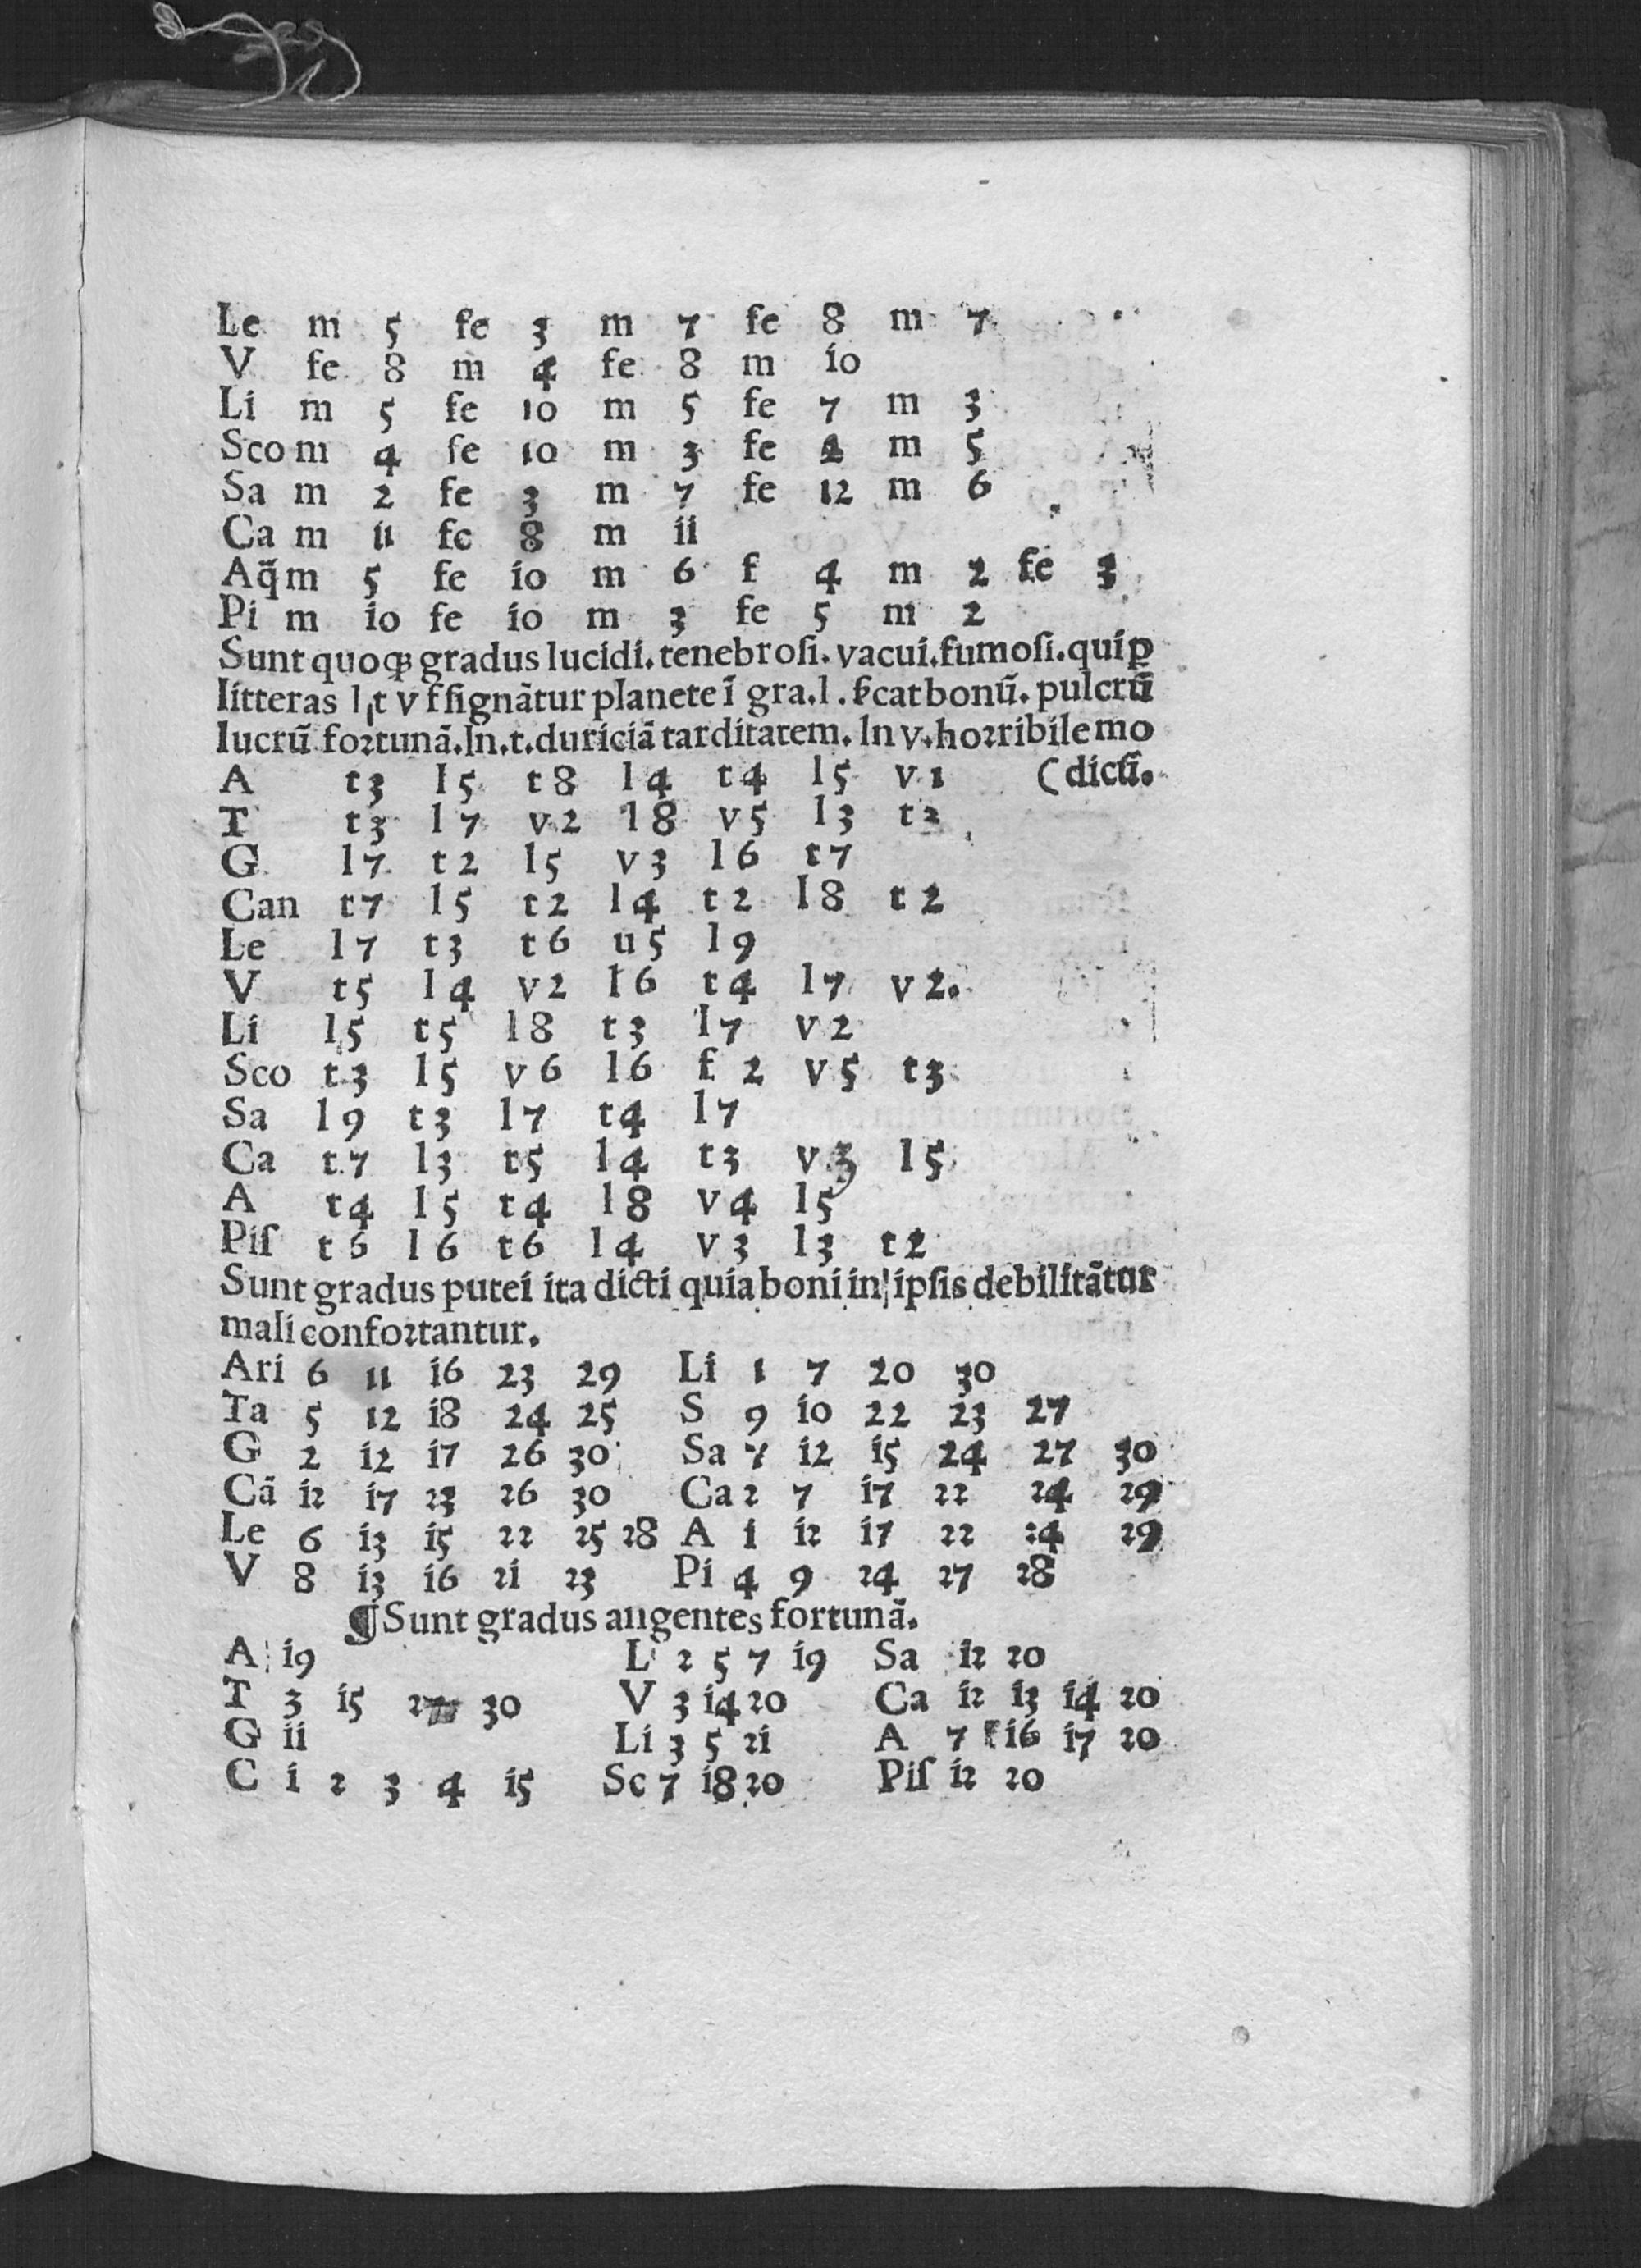 Le m 5 fe 3 m 7 fe 8 m 7
V fe 8 m 4 fe 8 m io
Li m 5 fe 10 m 5 fe 7 m 3
Sco m 4 fe 10 m 3 fe 2 m 5
Sa m 2 fe 3 m 7 fe 12 m 6
Ca m ii fe 8 m ii
Aq̃ m 5 fe io m 6 f 4 m 2 fe 3
Pi m io fe io m 3 fe 5 m 2
Sunt quoqꝫ gradus lucidi. tenebroſi. vacui. fumoſi. qui ꝑ
litteras l t v f ſignãtur planete ĩ gra. l. ſ̃cat bonũ. pulcrũ
lucrũ foꝛtunã. In. t. duriciã tarditatem. In v. hoꝛribile mo
A t3 l5 t8 l4 t4 l5 v1 (dicũ.
T t3 l7 v2 l8 v5 l3 t2
G l7 t2 l5 v3 l6 t7
Can t7 l5 t2 l4 t2 l8 t2
Le l7 t3 t6 u5 l9
V t5 l4 v2 l6 t4 l7 v2.
Li l5 t5 l8 t3 l7 v2
Sco t3 l5 v6 l6 f2 v5 t3
Sa l9 t3 l7 t4 l7
Ca t7 l3 t5 l4 t3 v3 l5
A t4 l5 t4 l8 v4 l5
Piſ t6 l6 t6 l4 v3 l3 t2
Sunt gradus putei ita dicti quia boni in ipſis debilitãtur
mali confoꝛtantur.
Ari 6 11 i6 23 29 Li 1 7 20 30
Ta 5 12 i8 24 25 S 9 io 22 23 27
G 2 i2 i7 26 30 Sa 7 i2 i5 24 27 30
Cã i2 i7 23 26 30 Ca 2 7 i7 22 24 29
Le 6 i3 i5 22 25 28 A i i2 i7 22 24 29
V 8 i3 i6 2i 23 Pi 4 9 24 27 28
¶ Sunt gradus augentes fortunã.
A i9 L 2 5 7 i9 Sa i2 20
T 3 i5 27 30 V 3 i4 20 Ca i2 i3 i4 20
G ii Li 3 5 2i A 7 i6 i7 20
C i 2 3 4 i5 Sc 7 i8 20 Piſ i2 20